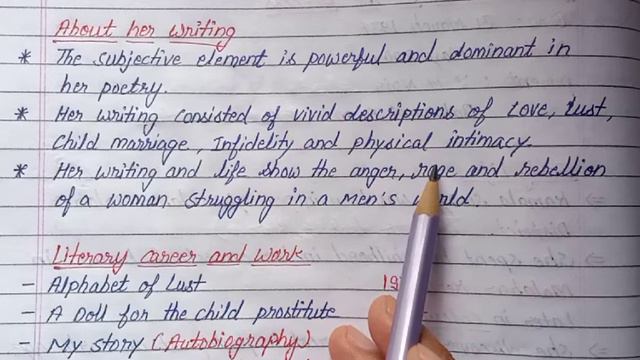 About her writing
* The subjective element is powerful and dominant in
her poetry.
* Her writing consisted of vivid descriptions of Love, Lust,
Child marriage, Infidelity and physical intimacy.
* Her writing and life show the anger, rage and rebellion
of a woman struggling in a men's world
Literary career and work
- Alphabet of Lust
- A Doll for the child prostitute
- My story (Autobiography)